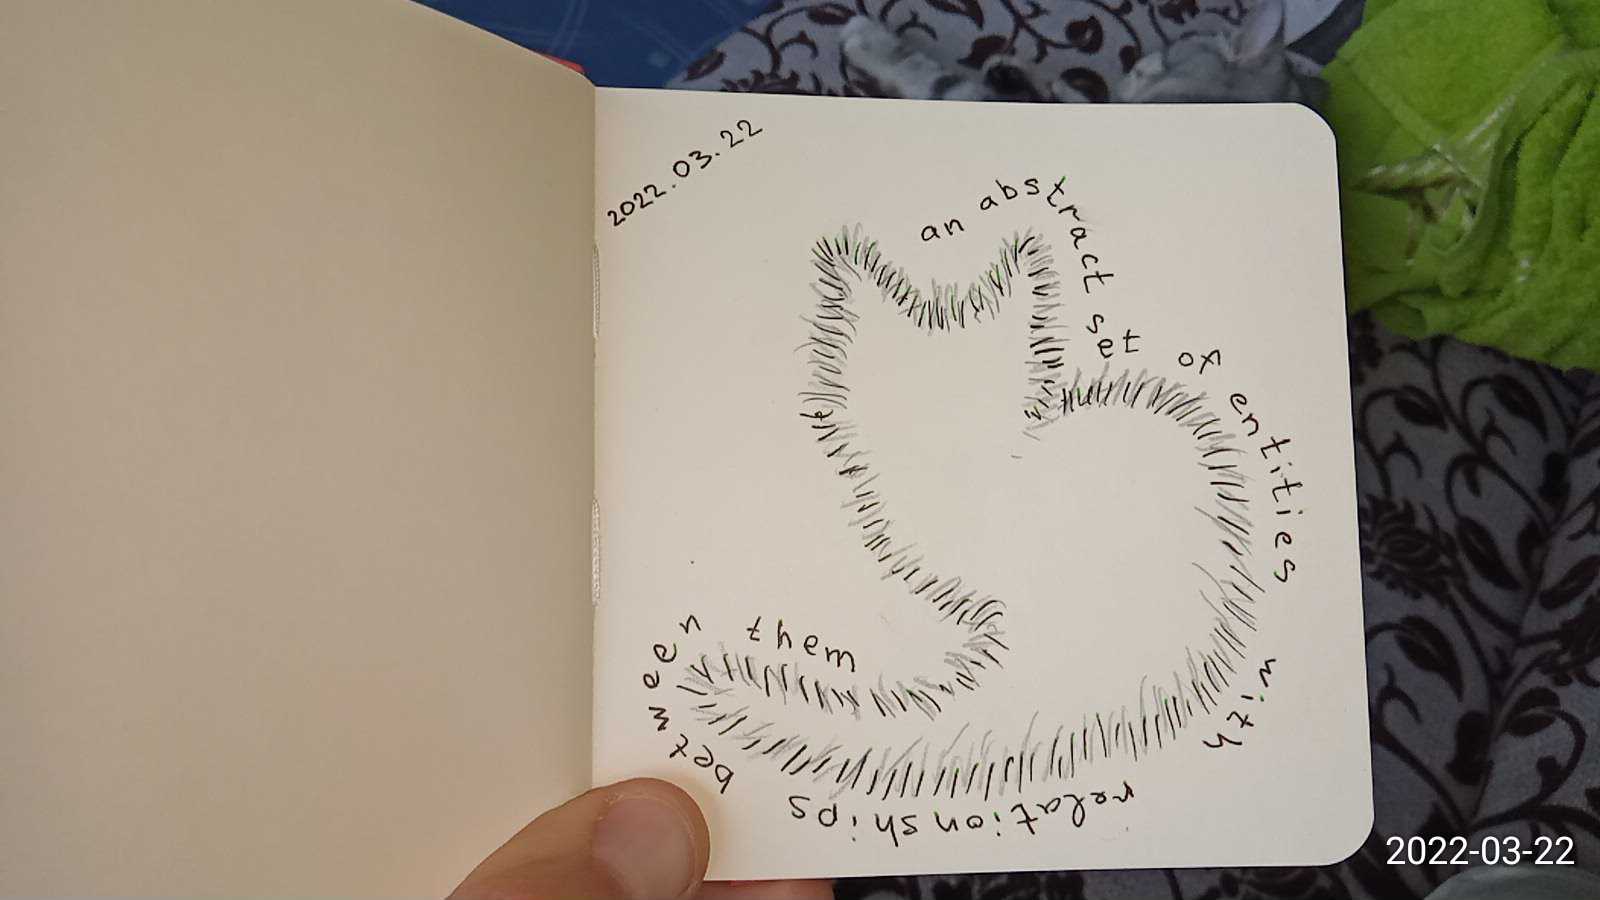 2022.03.22
an abstract set of entities with relationships between them
2022-03-22